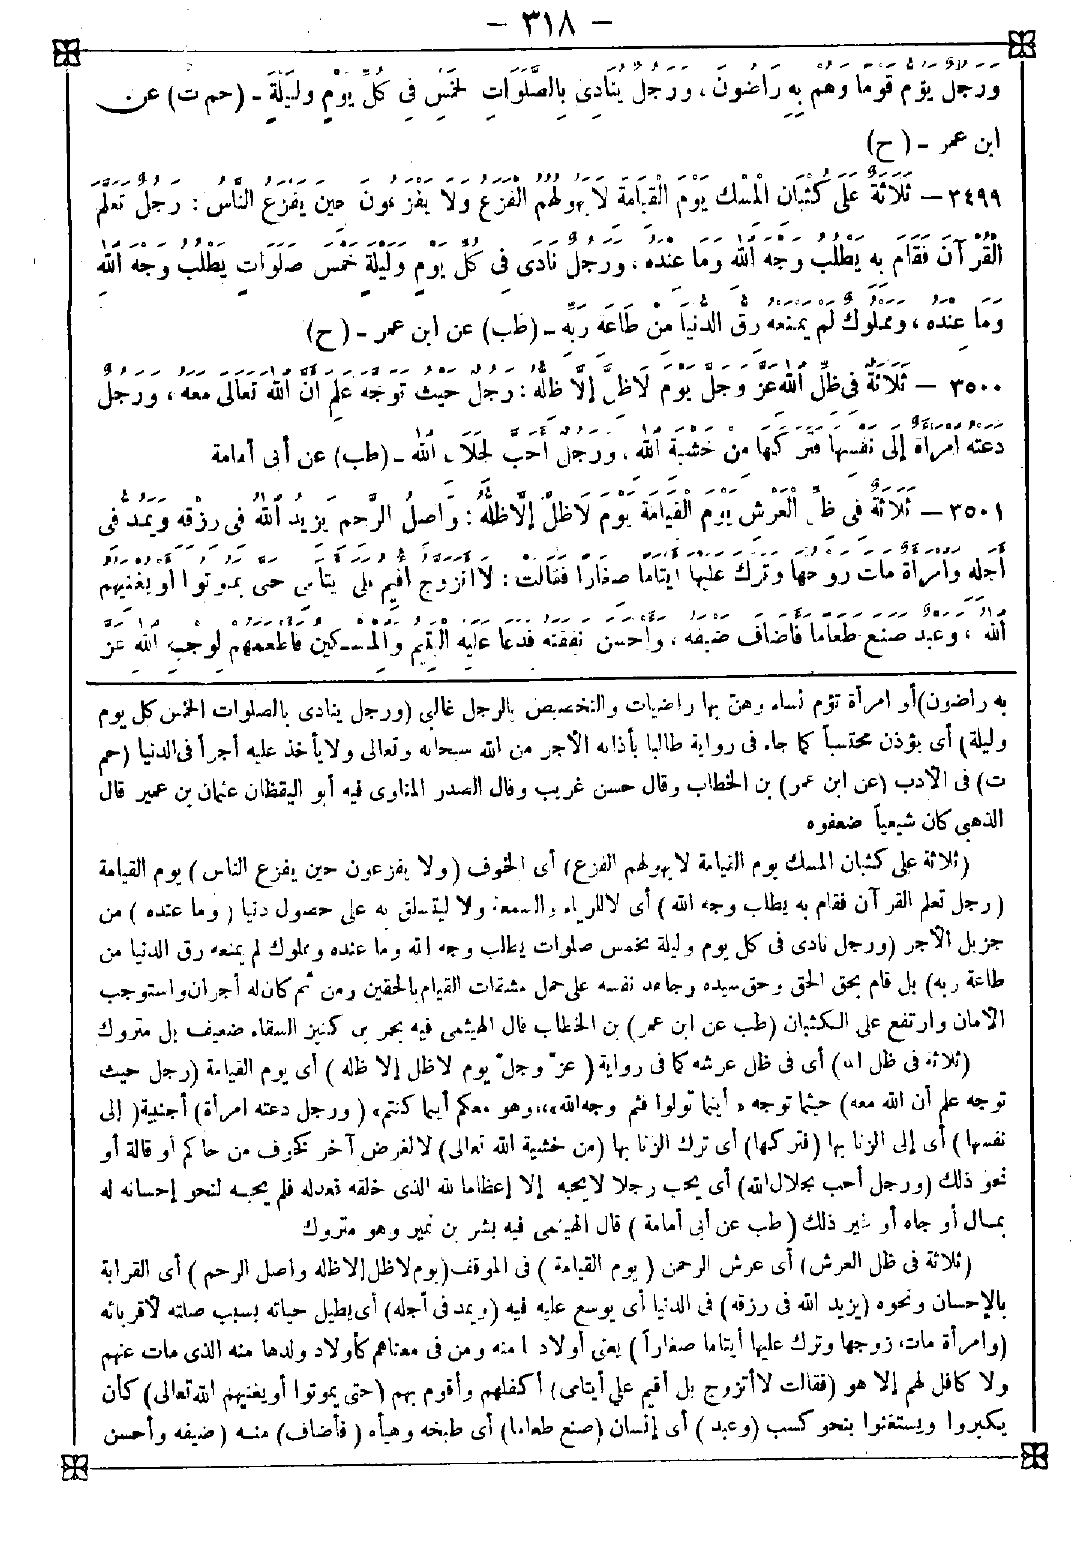 - ٣١٨ -
وَرَجُلٌ يَؤُمُّ قَوْمًا وَهُمْ بِهِ رَاضُونَ ، وَرَجُلٌ يُنَادِي بِالصَّلَوَاتِ الخَمْسِ فِي كُلِّ يَوْمٍ وَلَيْلَةٍ - (حم ت) عن
ابن عمر - (ح)
٣٤٩٩ - ثَلَاثَةٌ عَلَى كُثْبَانِ الْمِسْكِ يَوْمَ الْقِيَامَةِ لَا يَهُولُهُمُ الْفَزَعُ وَلَا يَفْزَعُونَ حِينَ يَفْزَعُ النَّاسُ : رَجُلٌ تَعَلَّمَ
الْقُرْآنَ فَقَامَ بِهِ يَطْلُبُ وَجْهَ اللهِ وَمَا عِنْدَهُ ، وَرَجُلٌ نَادَى فِي كُلِّ يَوْمٍ وَلَيْلَةٍ خَمْسَ صَلَوَاتٍ يَطْلُبُ وَجْهَ اللهِ
وَمَا عِنْدَهُ ، وَمَمْلُوكٌ لَمْ يَمْنَعْهُ رِقُّ الدُّنْيَا مِنْ طَاعَةِ رَبِّهِ - (طب) عن ابن عمر - (ح)
٣٥٠٠ - ثَلَاثَةٌ فِي ظِلِّ اللهِ عَزَّ وَجَلَّ يَوْمَ لَا ظِلَّ إِلَّا ظِلُّهُ : رَجُلٌ حَيْثُ تَوَجَّهَ عَلِمَ أَنَّ اللهَ تَعَالَى مَعَهُ ، وَرَجُلٌ
دَعَتْهُ امْرَأَةٌ إِلَى نَفْسِهَا فَتَرَكَهَا مِنْ خَشْيَةِ اللهِ ، وَرَجُلٌ أَحَبَّ لِجَلَالِ اللهِ - (طب) عن أبى أمامة
٣٥٠١ - ثَلَاثَةٌ فِي ظِلِّ الْعَرْشِ يَوْمَ الْقِيَامَةِ يَوْمَ لَا ظِلَّ إِلَّا ظِلُّهُ : وَاصِلُ الرَّحِمِ يَزِيدُ اللهُ فِي رِزْقِهِ وَيَمُدُّ فِي
أَجَلِهِ وَامْرَأَةٌ مَاتَ زَوْجُهَا وَتَرَكَ عَلَيْهَا أَيْتَامًا صِغَارًا فَقَالَتْ : لَا أَتَزَوَّجُ أُقِيمُ عَلَى أَيْتَامِي حَتَّى يَمُوتُوا أَوْ يُغْنِيَهُمُ
اللهُ ، وَعَبْدٌ صَنَعَ طَعَامًا فَأَضَافَ ضَيْفَهُ ، وَأَحْسَنَ نَفَقَتَهُ فَدَعَا عَلَيْهِ الْيَتِيمَ وَالْمِسْكِينَ فَأَطْعَمَهُمْ لِوَجْهِ اللهِ عَزَّ
به راضون) أو امرأة تؤم نساء وهن بها راضيات والتخصيص بالرجل غالبى (ورجل ينادى بالصلوات الخمس كل يوم
وليلة) أى يؤذن محتسباً كما جاء فى رواية طالبا بأذانه الأجر من الله سبحانه وتعالى ولا يأخذ عليه أجراً فى الدنيا (حم
ت) فى الأدب (عن ابن عمر) بن الخطاب وقال حسن غريب وقال الصدر المناوى فيه أبو اليقظان عثمان بن عمير قال
الذهبى كان شيعياً ضعفوه
(ثلاثة على كثبان المسك يوم القيامة لا يهولهم الفزع) أى الخوف (ولا يفزعون حين يفزع الناس) يوم القيامة
(رجل تعلم القرآن فقام به يطلب وجه الله) أى لا للرياء والسمعة ولا ليتسلق به على حصول دنيا (وما عنده) من
جزيل الأجر (ورجل نادى فى كل يوم وليلة بخمس صلوات يطلب وجه الله وما عنده ومملوك لم يمنعه رق الدنيا من
طاعة ربه) بل قام بحق الحق وحق سيده وجاهد نفسه على حمل مشقات القيام بالحقين ومن ثم كان له أجران واستوجب
الأمان وارتفع على الكثبان (طب عن ابن عمر) بن الخطاب قال الهيثمى فيه بحر بن كنيز السقاء ضعيف بل متروك
(ثلاثة فى ظل الله) أى فى ظل عرشه كما فى رواية (عزّ وجلّ يوم لا ظل إلا ظله) أى يوم القيامة (رجل حيث
توجه علم أن الله معه) حيثما توجه « أينما تولوا فثم وجه الله ، وهو معكم أينما كنتم » (ورجل دعته امرأة) أجنبية (إلى
نفسها) أى إلى الزنا بها (فتركها) أى ترك الزنا بها (من خشية الله تعالى) لا لغرض آخر كخوف من حاكم أو قالة أو
نحو ذلك (ورجل أحب بجلال الله) أى يحب رجلا لا يحبه إلا إعظاما لله الذى خلقه فعدله فلم يحبه لنحو إحسانه له
بمال أو جاه أو غير ذلك (طب عن أبى أمامة) قال الهيثمى فيه بشر بن نمير وهو متروك
(ثلاثة فى ظل العرش) أى عرش الرحمن (يوم القيامة) فى الموقف (يوم لا ظل إلا ظله واصل الرحم) أى القرابة
بالإحسان ونحوه (يزيد الله فى رزقه) فى الدنيا أى يوسع عليه فيه (ويمد فى أجله) أى يطيل حياته بسبب صلته لأقربائه
(وامرأة مات زوجها وترك عليها أيتاما صغاراً) يعنى أولادا منه ومن فى معناهم كأولاد ولدها منه الذى مات عنهم
ولا كافل لهم إلا هو (فقالت لا أتزوج بل أقيم على أيتامى) أكفلهم وأقوم بهم (حتى يموتوا أو يغنيهم الله تعالى) كأن
يكبروا ويستغنوا بنحو كسب (وعبد) أى إنسان (صنع طعاما) أى طبخه وهيأه (فأضاف) منه (ضيفه وأحسن